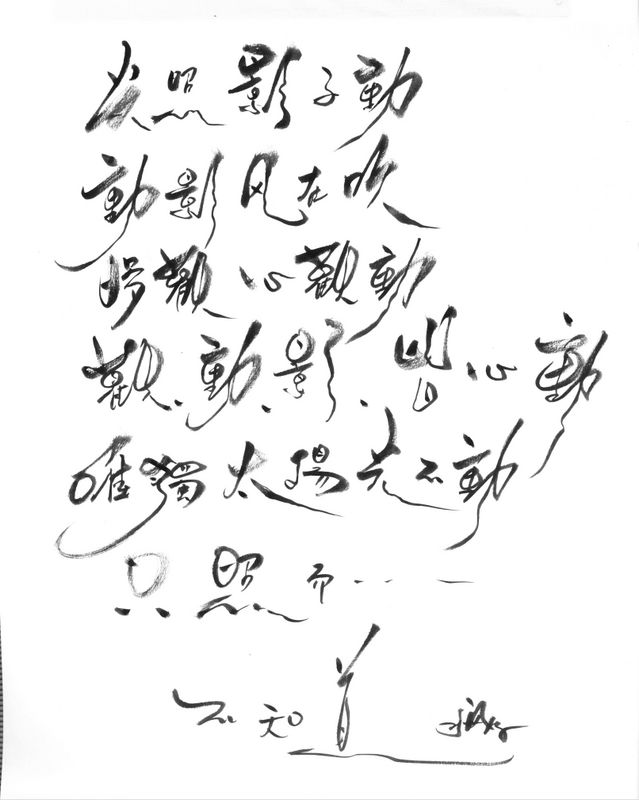 光照影子動
動影風在吹
好觀心觀動
觀、動、影、皆心動
唯獨太陽光不動
只照而……一
不知道